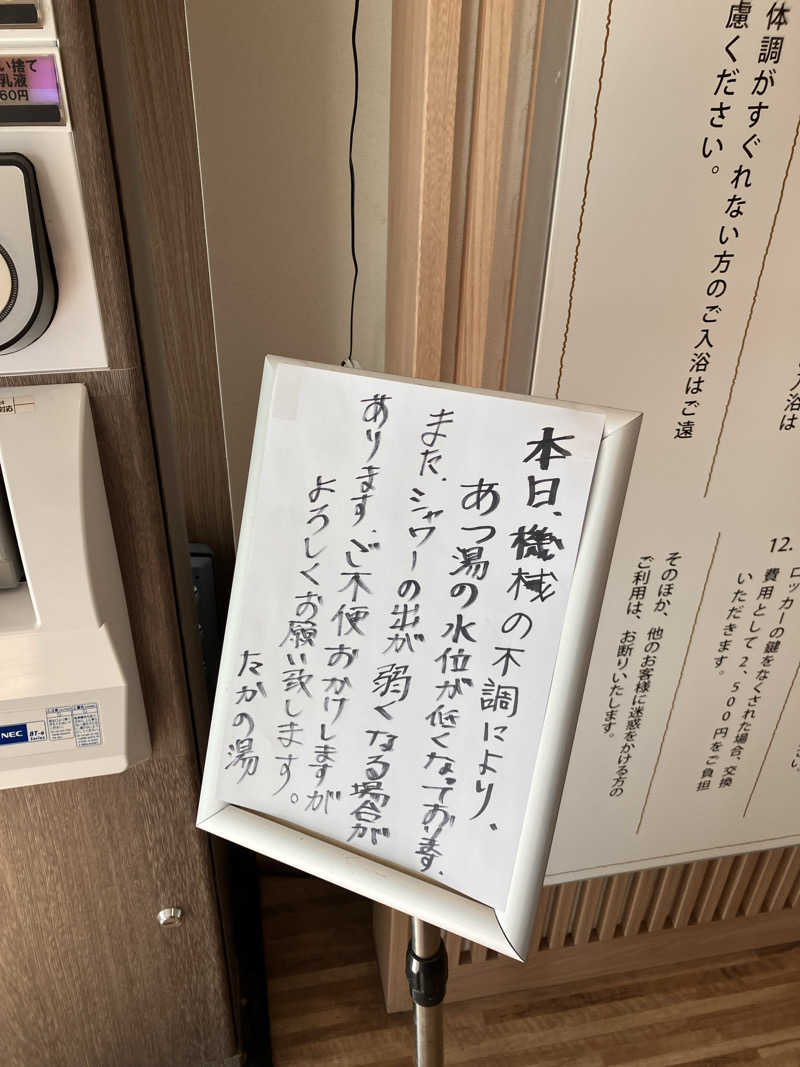 本日、機械の不調により、
あつ湯の水位が低くなっております。
また、シャワーの出が弱くなる場合が
あります。ご不便おかけしますが
よろしくお願い致します。
たかの湯
体調がすぐれない方のご入浴はご遠
慮ください。
入浴は
12.
ロッカーの鍵をなくされた場合、交換
費用として2,500円をご負担
いただきます。
そのほか、他のお客様に迷惑をかける方の
ご利用は、お断りいたします。
い捨て
乳液
60円
対応
NEC
BT-α
Series